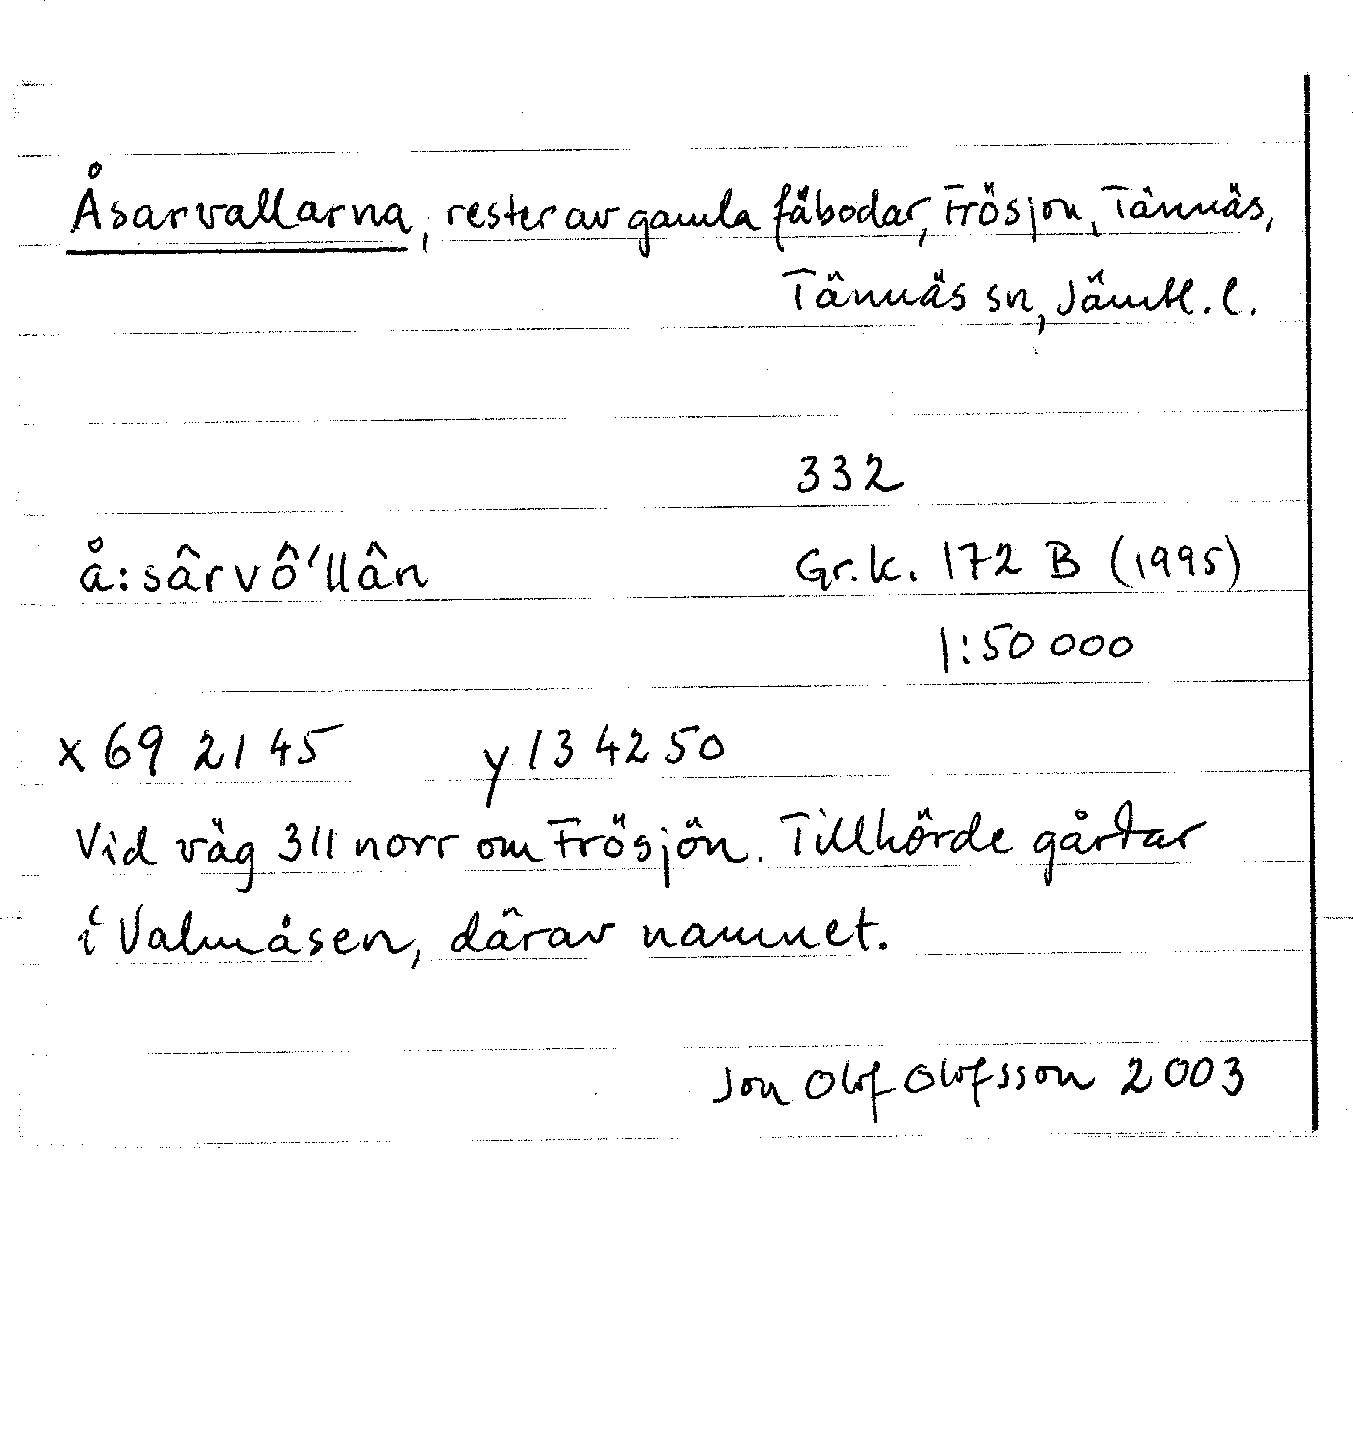 Åsarvallarna, rester av gamla fäbodar, Frösjön, Tännäs,
Tännäs sn, Jämtl. l.
332
å:sârvô'llân Gr.k. 172 B (1995)
1:50 000
x 69 21 45 y 13 42 50
Vid väg 311 norr om Frösjön. Tillhörde gårdar
i Valmåsen, därav namnet.
Jon Olof Olofsson 2003